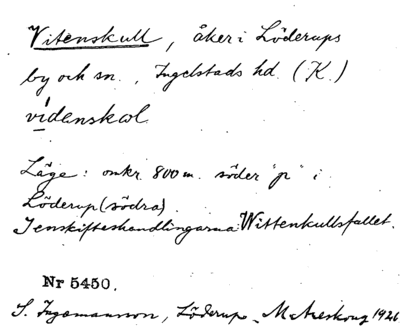 Vitenskull, åker i Löderups
by och sn., Ingelstads hd. (K.)
vídənskəl
Läge: omkr. 800 m. söder "p" i
Löderup (södra).
I enskifteshandlingarna: Wittenkullsfallet.
Nr 5450.
S. Ingemansson, Löderup. M. Areskoug 1926